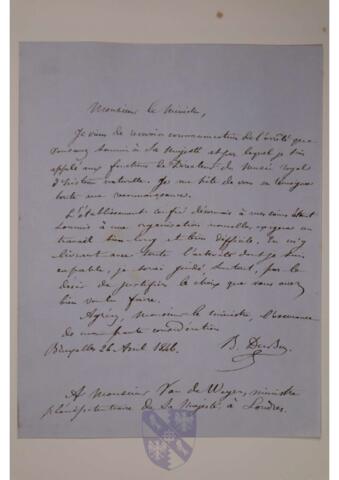 Monsieur le Ministre,
Je viens de recevoir communication de l'arrêté que
vous avez soumis à Sa Majesté et par lequel je suis
appelé aux fonctions de Directeur du Musée royal
d'histoire naturelle. Je me hâte de vous en témoigner
toute ma reconnaissance.
L'établissement confié désormais à mes soins étant
soumis à une organisation nouvelle, exigera un
travail bien long et bien difficile. En m'y
livrant avec toute l'activité dont je suis
capable, je serai guidé surtout, par le
désir de justifier le choix que vous avez
bien voulu faire.
Agréez, Monsieur le ministre, l'assurance
de ma haute considération
Bruxelles 26 Avril 1846. B. Du Bus
A Monsieur Van de Weyer, ministre
plénipotentiaire de Sa Majesté à Londres.